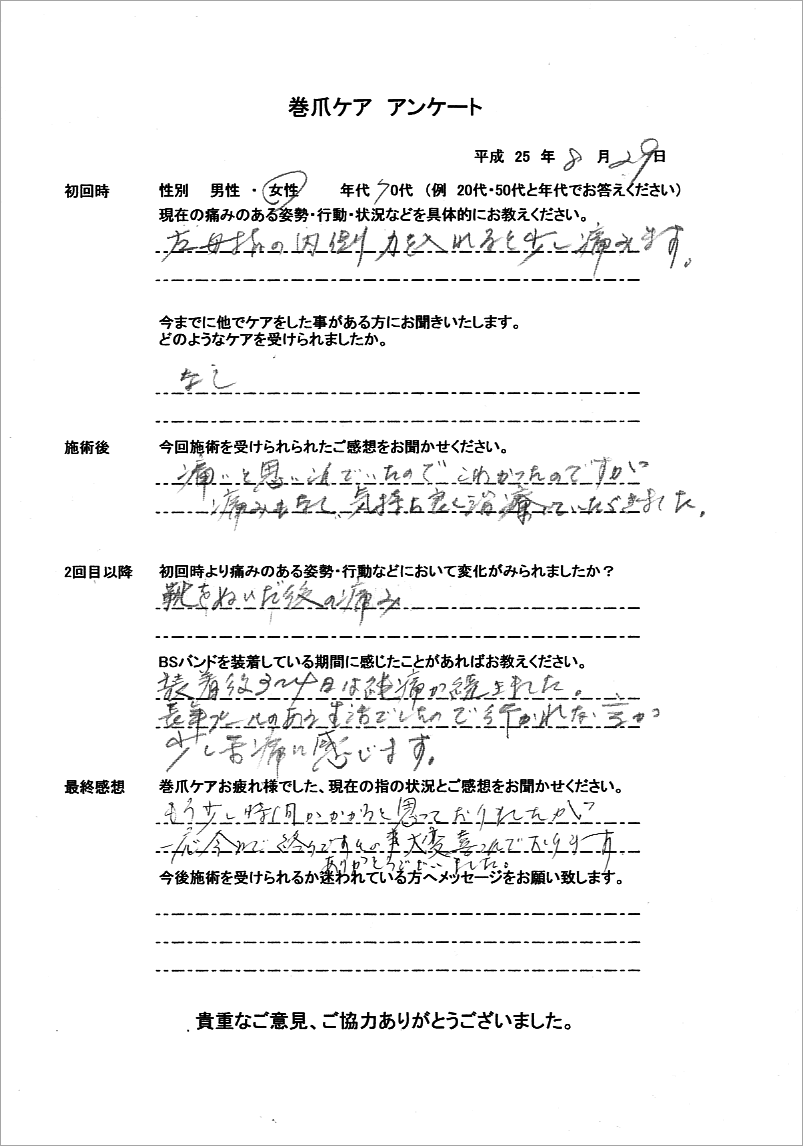 巻爪ケア アンケート
平成 25 年 8 月 29日
初回時 性別 男性 ・ 女性 年代 70代 (例 20代・50代と年代でお答えください)
現在の痛みのある姿勢・行動・状況などを具体的にお教えください。
左母指の内側 力を入れると少し痛みます。
今までに他でケアをした事がある方にお聞きいたします。
どのようなケアを受けられましたか。
なし
施術後 今回施術を受けられられたご感想をお聞かせください。
痛いと思いこんでいたのでこわかったのですが
痛みもなく、気持ち良く治療していただきました。
2回目以降 初回時より痛みのある姿勢・行動などにおいて変化がみられましたか？
靴をぬいだ後の痛み
BSバンドを装着している期間に感じたことがあればお教えください。
装着後3〜4日は鈍痛が続きました。
長年プールのある生活でしたので行かれない
少し苦痛に感じます。
最終感想 巻爪ケアお疲れ様でした、現在の指の状況とご感想をお聞かせください。
もう少し時間がかかると思っておりましたが
今回で終りですとの事大変喜こんでおります
ありがとうございました。
今後施術を受けられるか迷われている方へメッセージをお願い致します。
貴重なご意見、ご協力ありがとうございました。